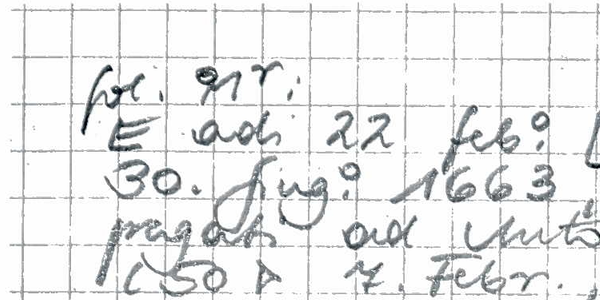 fol. 91r.
E adi 22 feb:
30. Jug: 1663
pagati ad Antõ
(50 D 7. Febr.